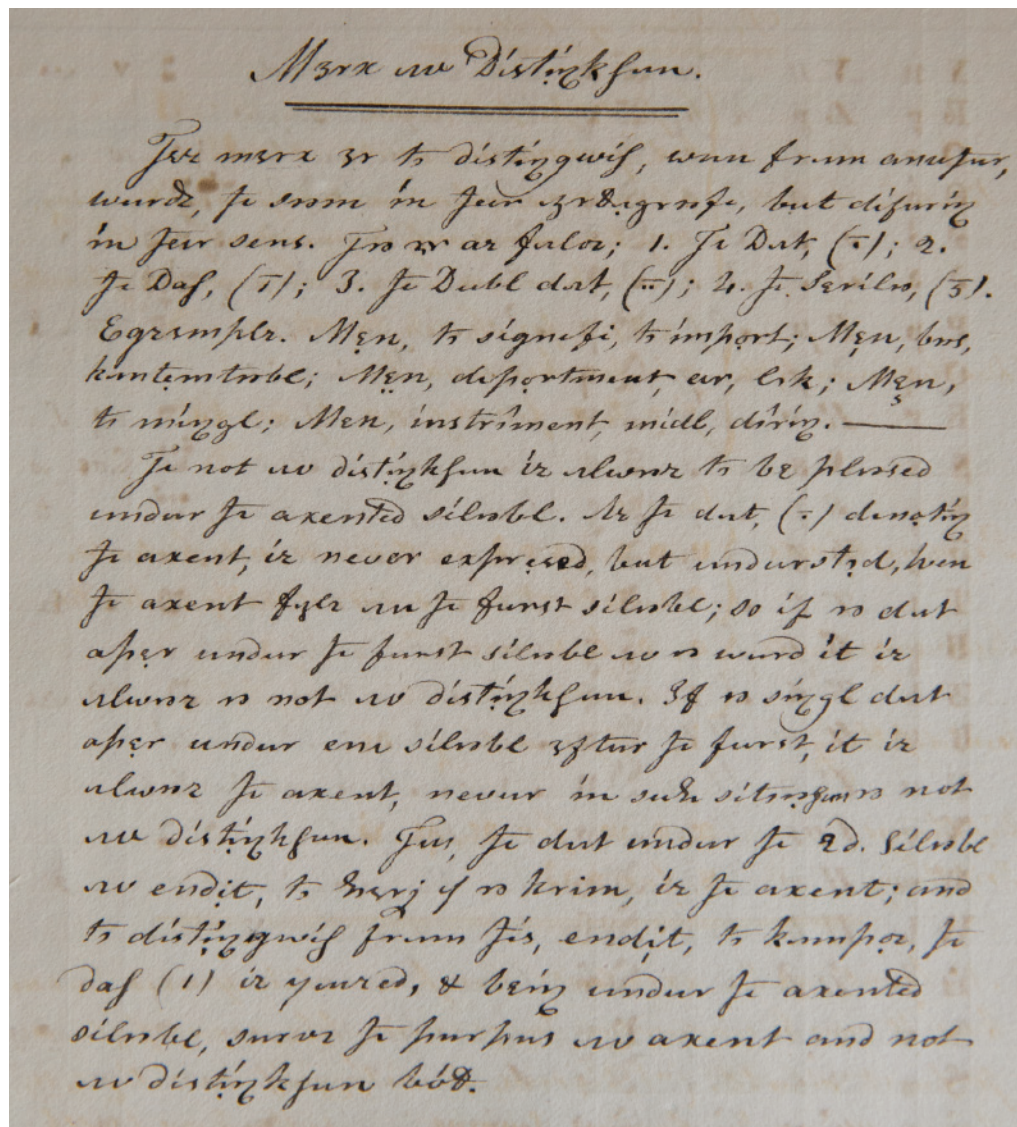 Mɜrx ɯv Distiŋkʃun.
Ꞙɛz mɜrx ɜr tƨ distiŋgwiʃ, wun frɯm anuꞙur,
wurdz, ꞙe sɷm in ꞙeir ɜrꞇɩgrɷfe, but difuriŋ
in ꞙeir sens. 1. Ꞙe Dɯt, (.); 2.
ꞙe Daʃ, (ı); 3. ꞙe Dubl dɯt, (..); 4. ꞙe Sɛrilɷ, (ɜ).
Egzɜmplz. Mɛn, tƨ signefi, tƨ import; Mɛn, bɷs,
kɯntemtɷbl; Mɛn, deportment, eir, lɷk; Mɛn,
tƨ miŋgl; Mɛn, instriment, midl, diriŋ. —
Ꞙe not ɯv distiŋkʃun iz ɯlwɷz tƨ bɛ plɷsed
undur ꞙe axented silɷbl. Az ꞙe dɯt, (.) denotiŋ
ꞙe axent, iz never expresed, but understɷd, hwen
ꞙe axent fɯlz ɯn ꞙe furst silɷbl; so if ɷ dɯt
apɛr undur ꞙe furst silɷbl ɯv ɷ wurd it iz
ɯlwɷz ɷ not ɯv distiŋkʃun. If ɷ siŋgl dɯt
apɛr undur eni silɷbl ɜftur ꞙe furst, it iz
ɯlwɷz ꞙe axent, nevur in sutʃ sitɷʃun ɷ not
ɯv distiŋkʃun. Ꞙus, ꞙe dɯt undur ꞙe 2d. silɷbl
ɯv endit, tƨ tʃɜrj ɯf ɷ krim, iz ꞙe axent; and
tƨ distiŋgwiʃ frɯm ꞙis, endit, tƨ kɯmpoz, ꞙe
daʃ (ı) iz yuzed, & bɛiŋ undur ꞙe axented
silɷbl, survz ꞙe purpus ɯv axent and not
ɯv distiŋkʃun boꞇ.